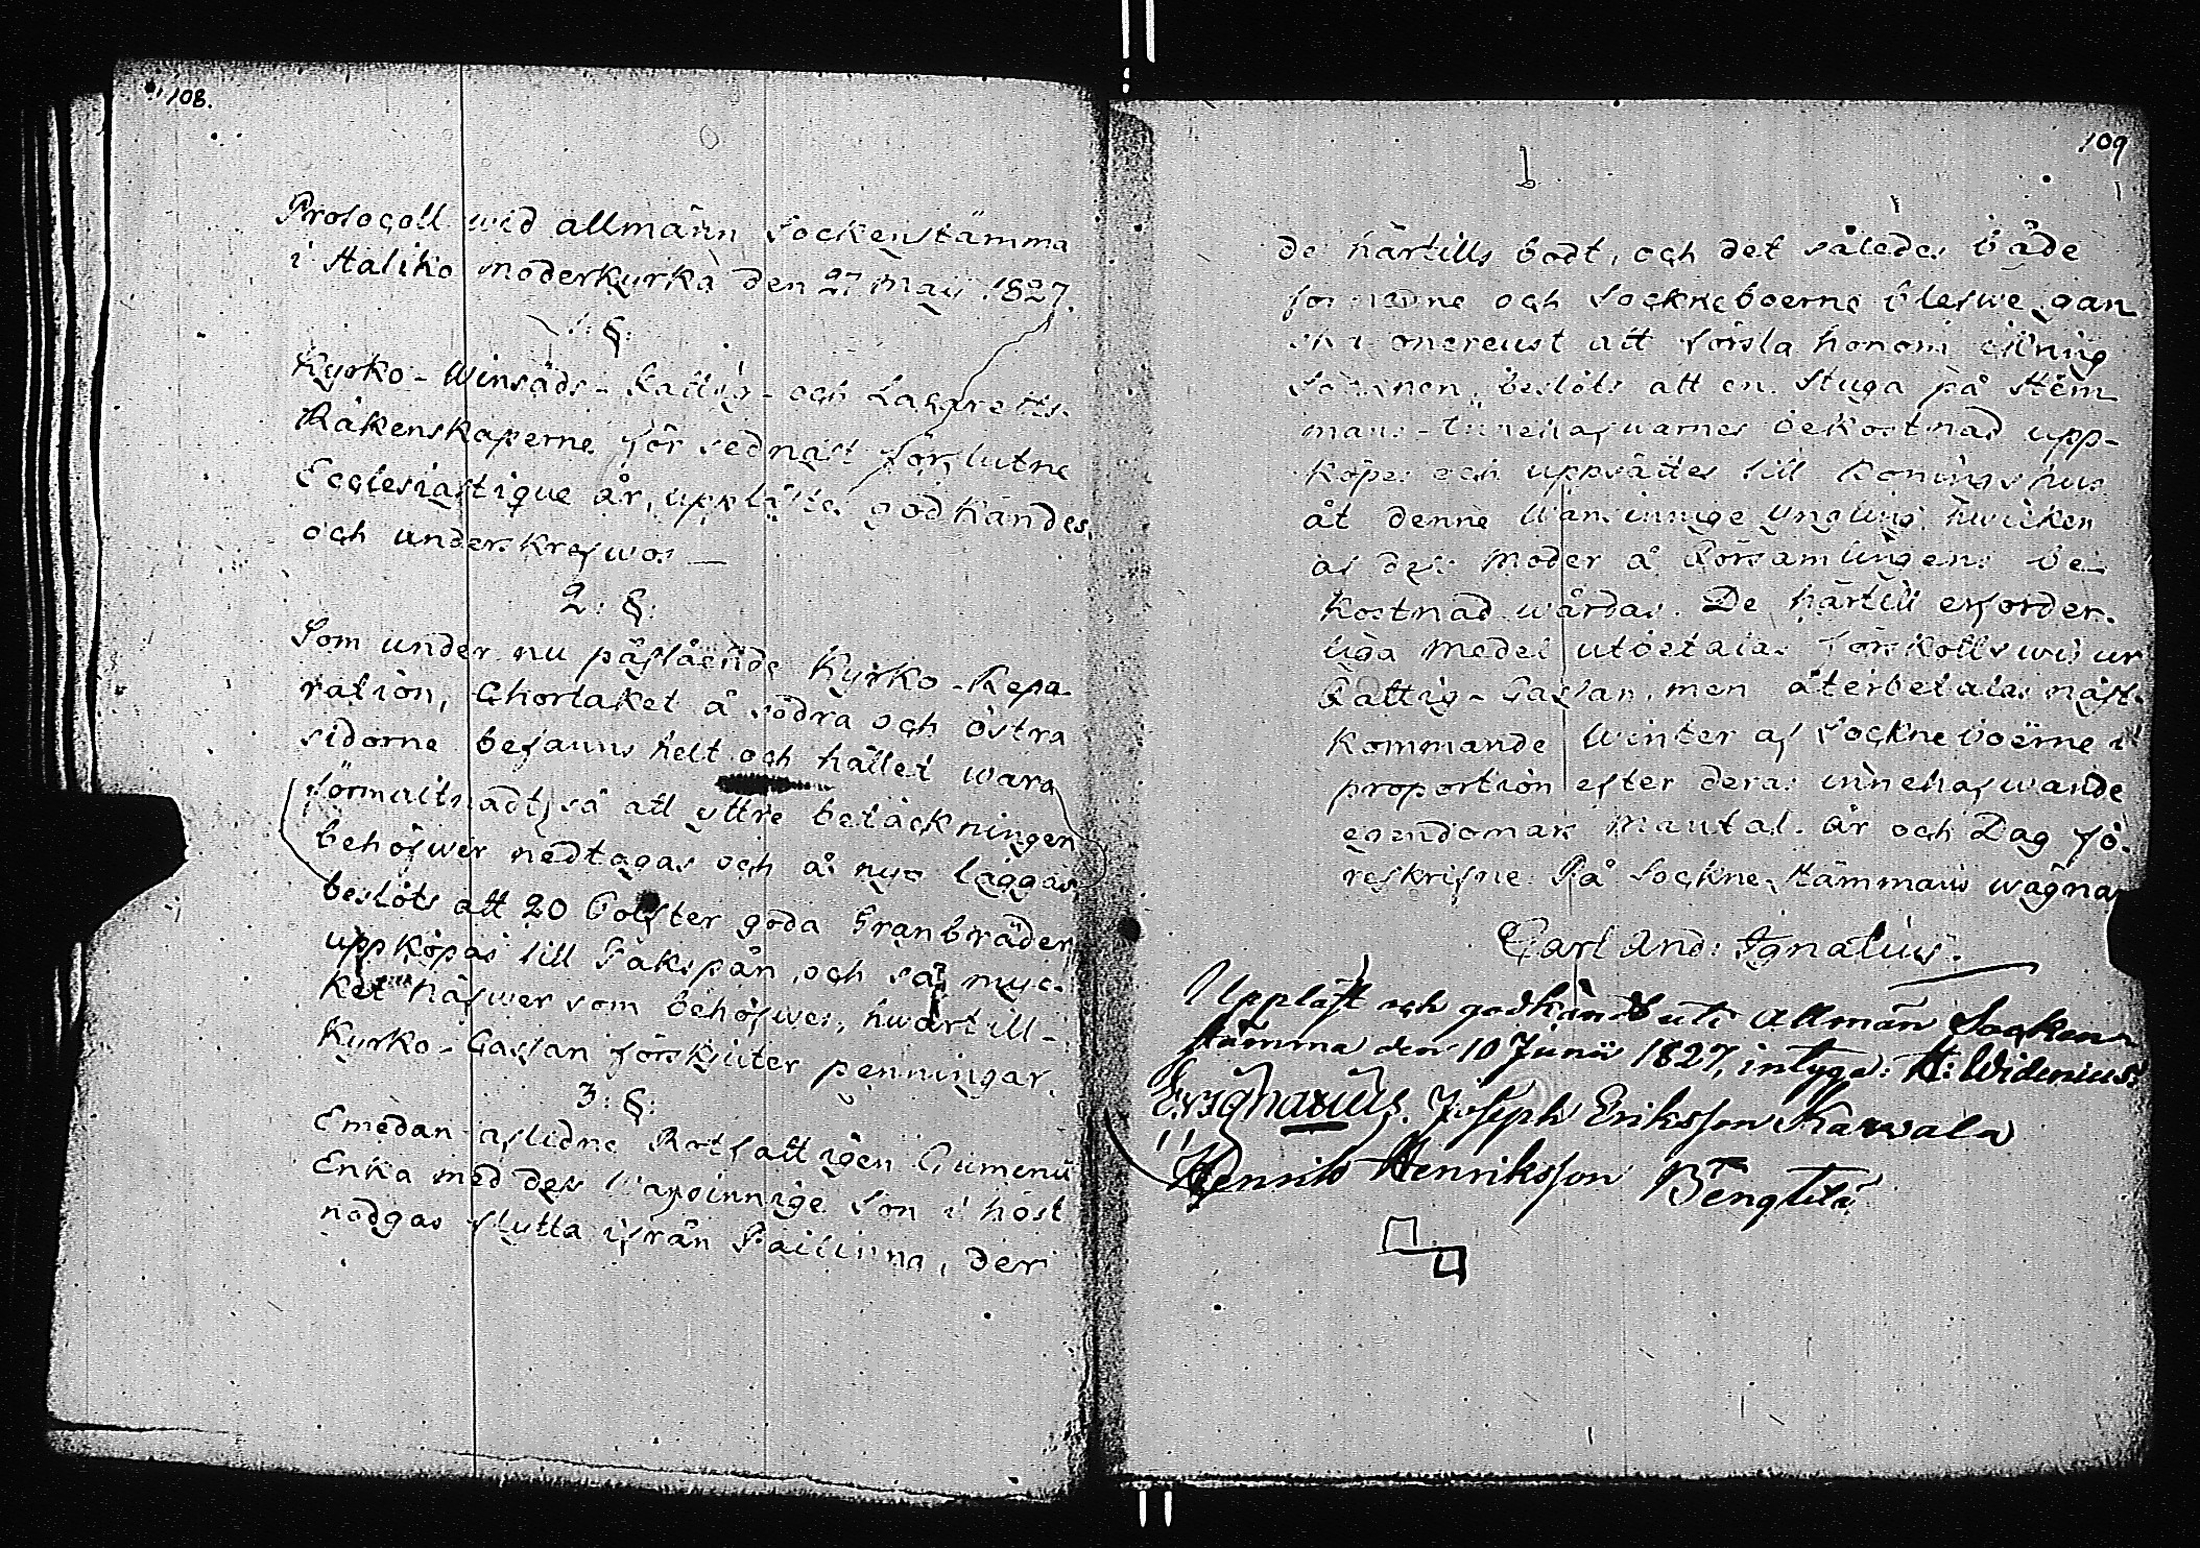 108.
Protocoll wid allmänn Sockenstämma
i Haliko moderkyrka den 27 Maii 1827.
1: §:
Kyrko- Winsäds- Fattig- och Lazaretts-
Räkenskaperne för sednast förflutne
Ecclesiastique år, upplästes godkändes,
och underskrefwos —
2: §:
Som under nu påstående Kyrko-Repa-
ration, Chortaket å södra och östra
sidorne befanns helt och hållet wara
förmultnadt, så att yttre betäckningen
behöfwer nedtagas och å nyo läggas,
beslöts att 20 Tolfter goda Granbräder
uppköpas till Takspån och så myc-
ket näfwer som behöfwes, hwartill
Kyrko-Cassan förskjuter penningar.
3: §:
Emedan aflidne Rotfattigen Gumenii
Enka med des wansinnige Son i höst
nödgas flytta ifrån Pailinna, der
109
de härtills bodt, och det således både
för henne och Sockneboerne blefwe gan
ska onereust att forsla honom kring
Socknen, beslöts att en Stuga på Hem
mans-innehafwarnes bekostnad upp-
köpes och uppsättes till Boningshus
åt denne Wansinnige Yngling hwilken
af des Moder å Församlingens be-
kostnad wårdas. De härtill erforder-
liga medel utbetalas förskottswis ur
Fattig-Cassan, men återbetalas näst-
kommande Winter af Sockneboerne i
proportion efter deras innehafwande
egendomars Mantal. År och Dag fö-
reskrifne. På Sockne-Stämmans wägnar
Carl And: Ignatius.
Uppläst och godkändt uti allmän Socken-
stämma den 10 Junii 1827, intyga: H: Widenius.
Ignatius. Joseph Eriksson Karwala
Henrik Henriksson Bengtilä